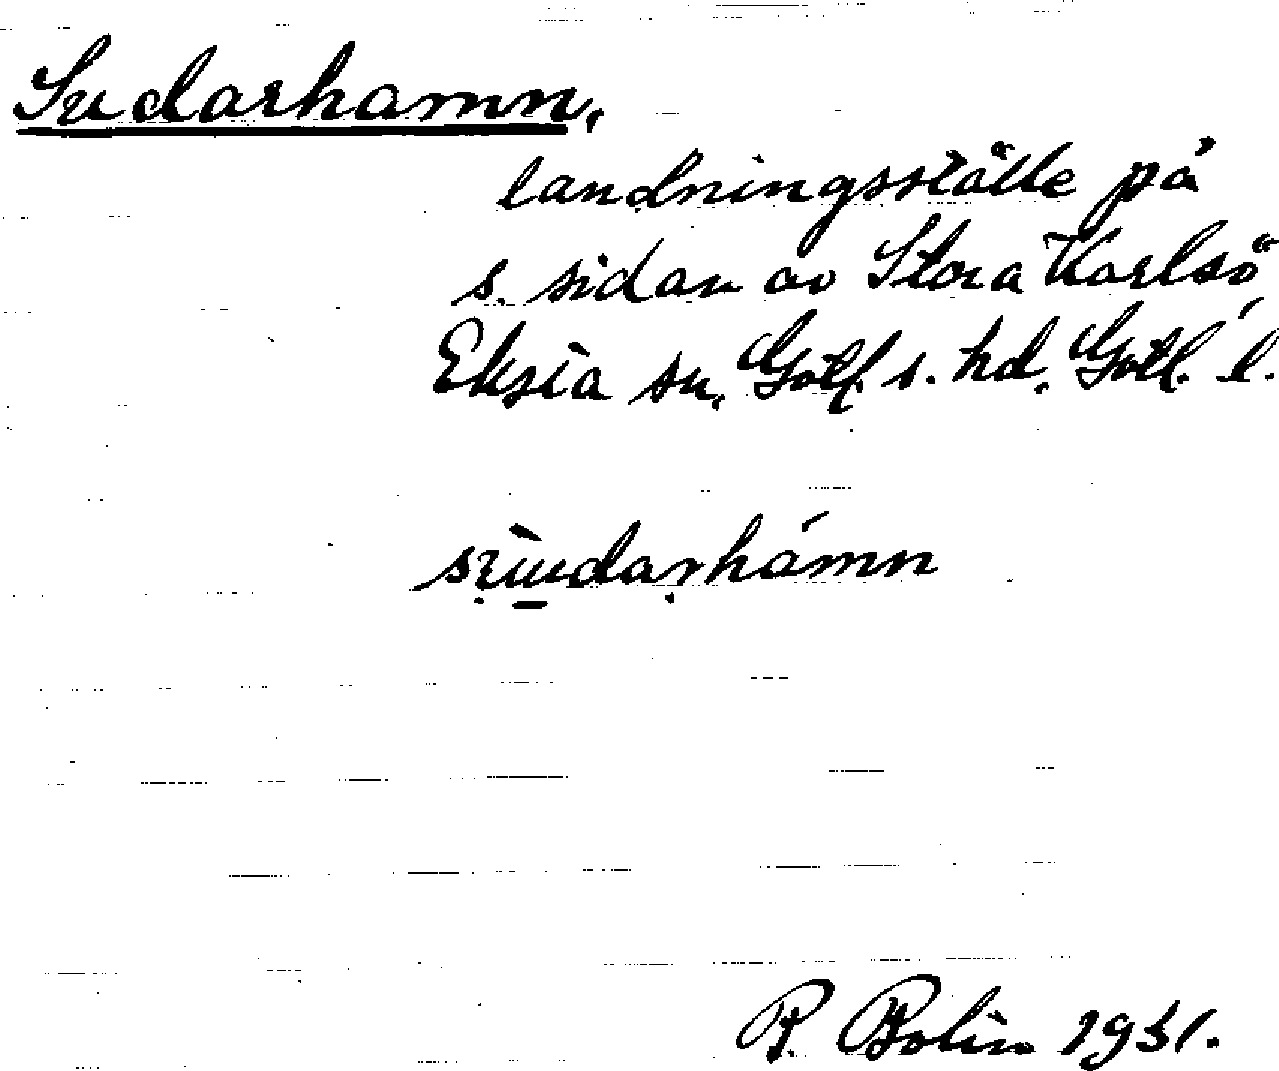 Sudarhamn,
landningsställe på
s. sidan av Stora Karlsö
Eksta sn, Gotl. s. hd, Gotl. l.
P. Bolin 1951.